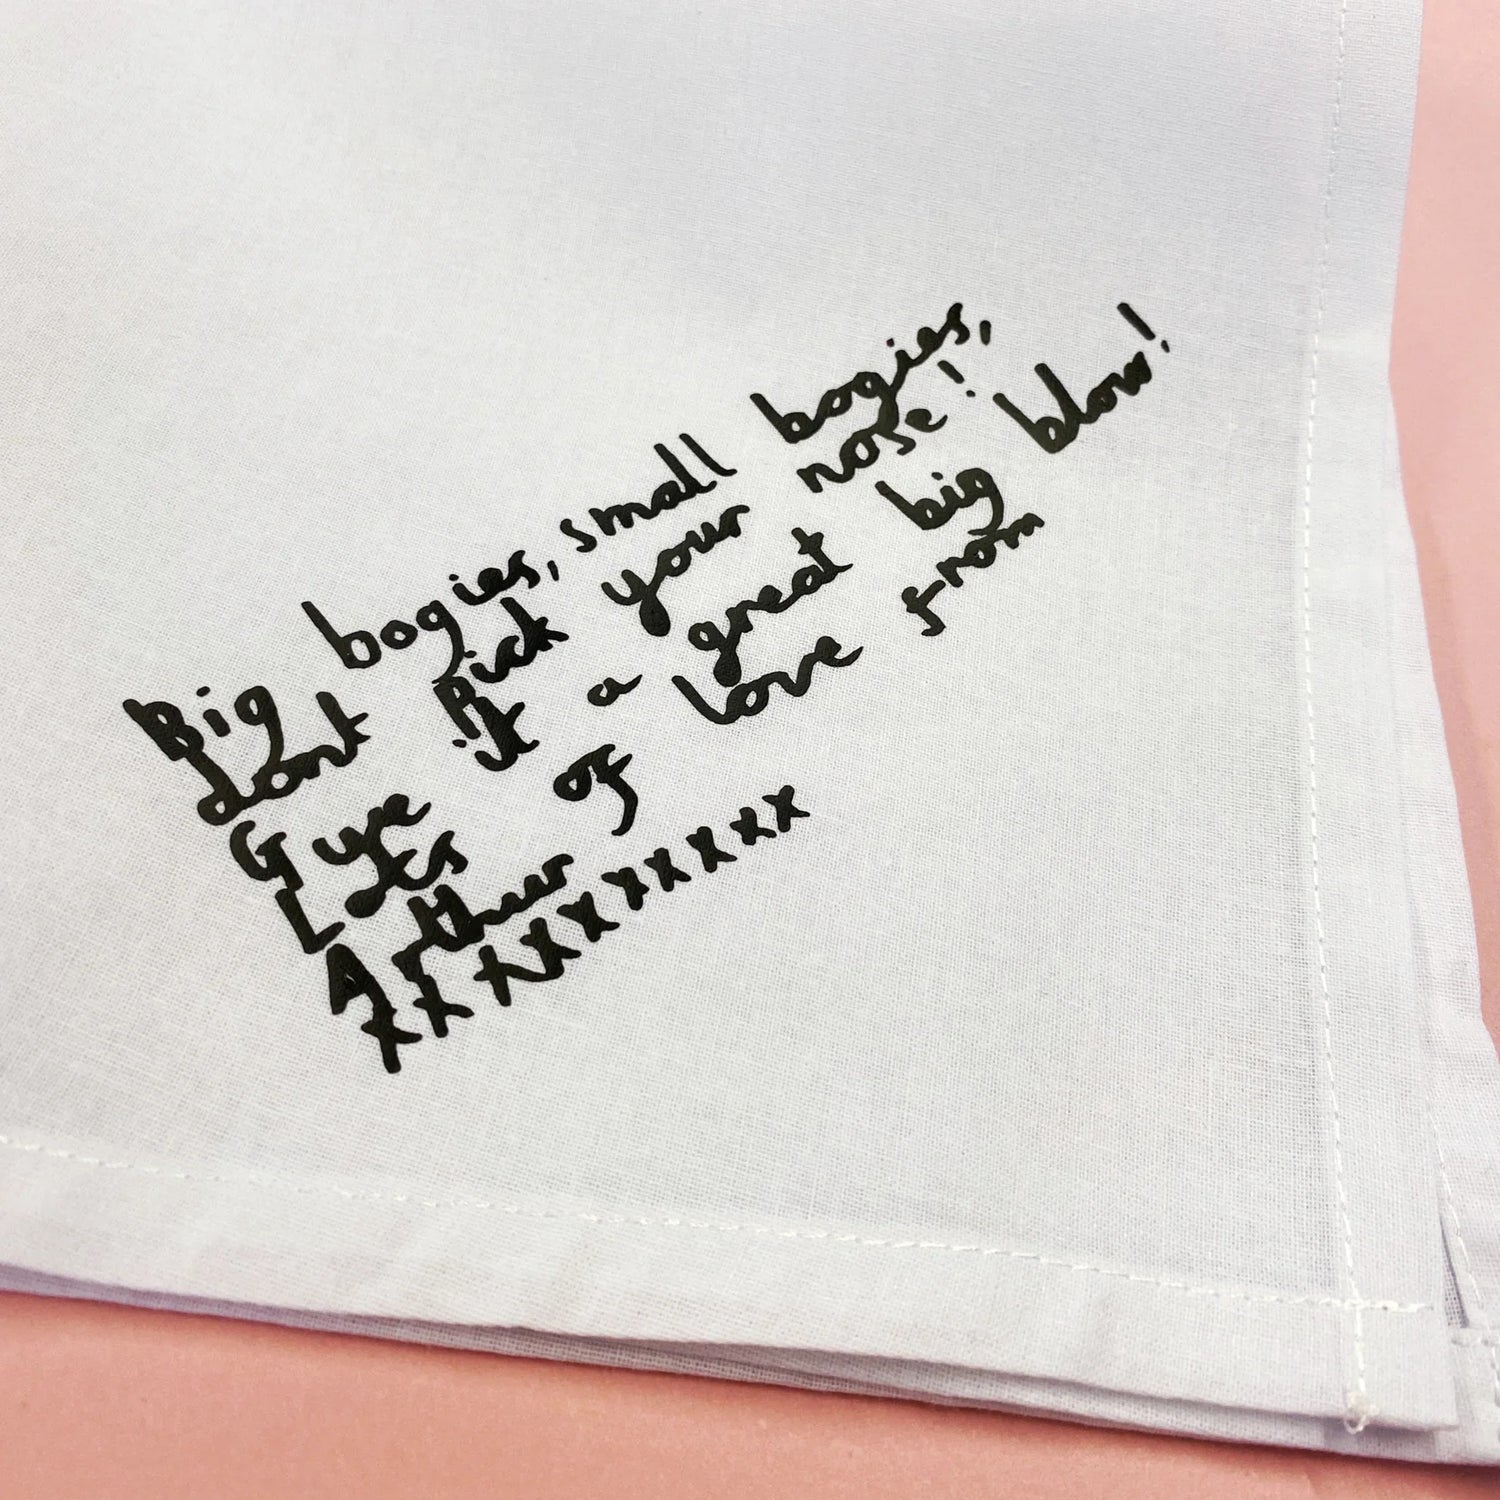 Big bogies, small bogies,
dont Pick your nose!
Give it a great big blow!
Lots of love from
Arthur
xxxxxxxxxx